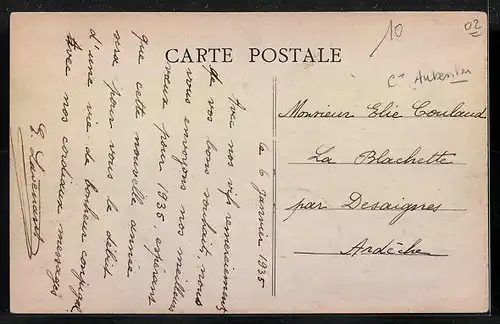 10
02
CARTE POSTALE
Cne Aubenton
Le 6 Janvier 1935
Avec nos vifs remerciements
de vos bons souhaits, nous
vous envoyons nos meilleurs
vœux pour 1935, espérant
que cette nouvelle année
sera pour vous le début
d'une vie de bonheur conjugal
Avec nos cordiaux messages
Monsieur Elie Coulaud
La Blachette
par Desaignes
Ardèche